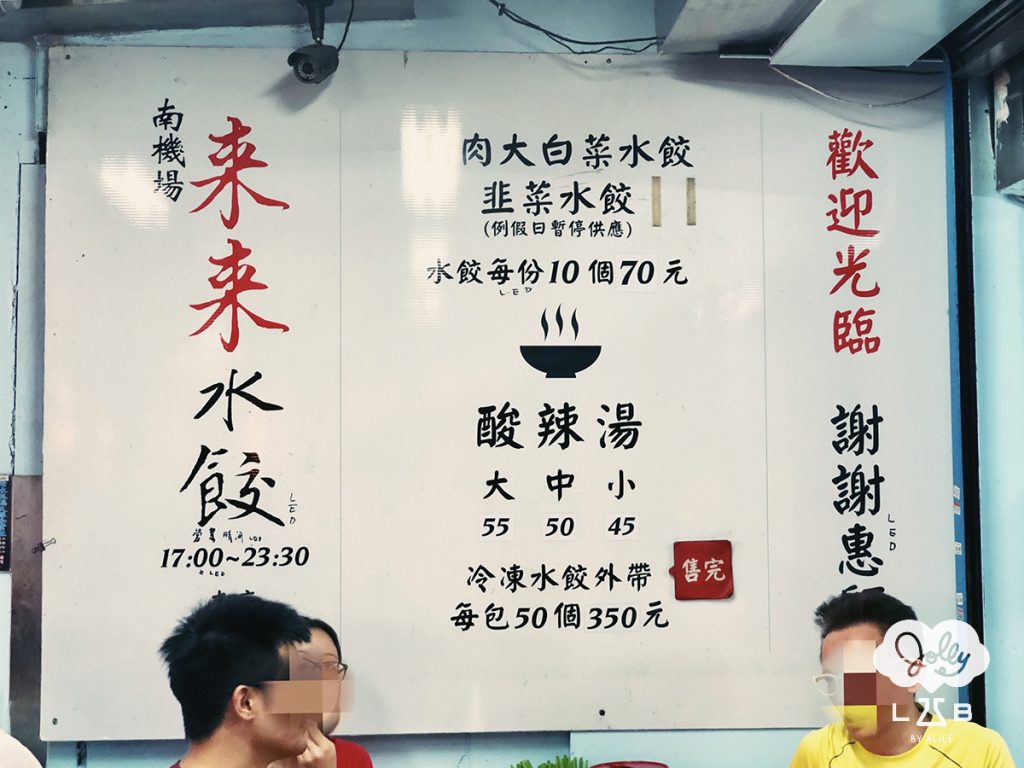 南機場
来来水餃
LED
營業時間 LED
17:00~23:30
LED
肉大白菜水餃
韭菜水餃
(例假日暫停供應)
水餃每份10個70元
LED
酸辣湯
大 中 小
55 50 45
冷凍水餃外帶
售完
每包50個350元
歡迎光臨
謝謝惠
LED
Jolly
LAB
BY ALICE